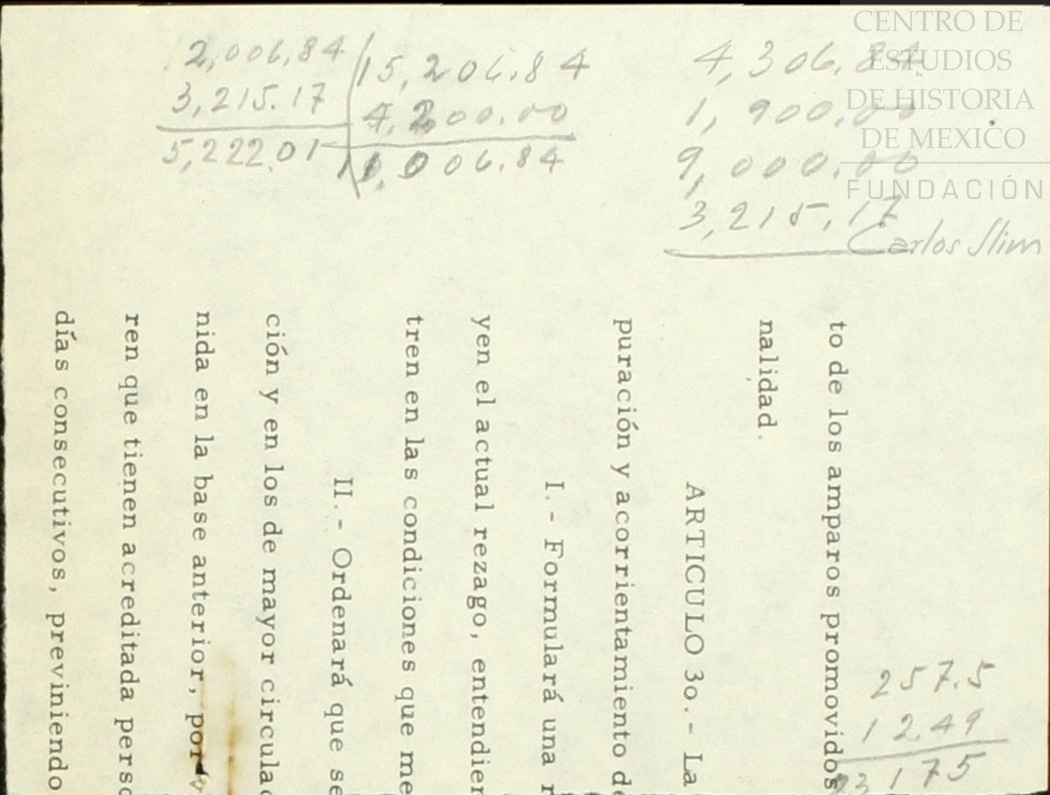 2,006.84
3,215.17
5,222.01
15,206.84
4,200.00
11,006.84
4,306.84
1,900.00
9,000.00
3,215.17
CENTRO DE
ESTUDIOS
DE HISTORIA
DE MEXICO
FUNDACIÓN
Carlos Slim
to de los amparos promovidos
nalidad.
ARTICULO 3o. - La
puración y acorrientamiento de
I. - Formulará una r
yen el actual rezago, entendier
tren en las condiciones que me
II. - Ordenará que se
ción y en los de mayor circulac
nida en la base anterior, por
ren que tienen acreditada perso
días consecutivos, previniendo
257.5
12.49
23175